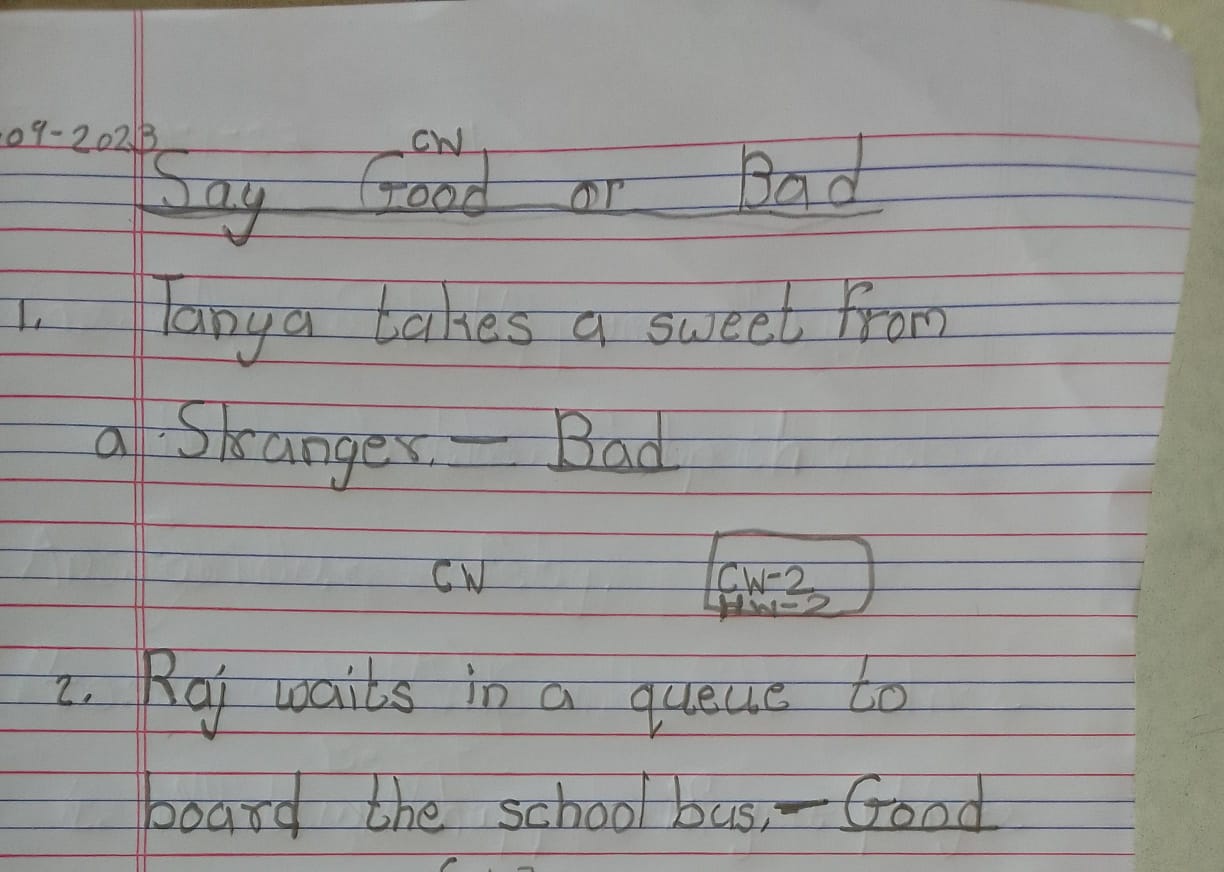 09-2023
CW
Say Good or Bad
1. Tanya takes a sweet from
a Stranger. — Bad
CW CW-2
HW-2
2. Raj waits in a queue to
board the school bus. — Good